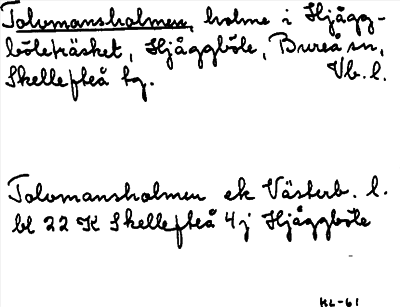 Tolvmansholmen, holme i Hjågg-
böleträsket, Hjåggböle, Bureå sn,
Skellefteå tg. Vb. l.
Tolvmansholmen ek Västerb. l.
bl 22 K Skellefteå 4 j Hjåggböle
KL-61